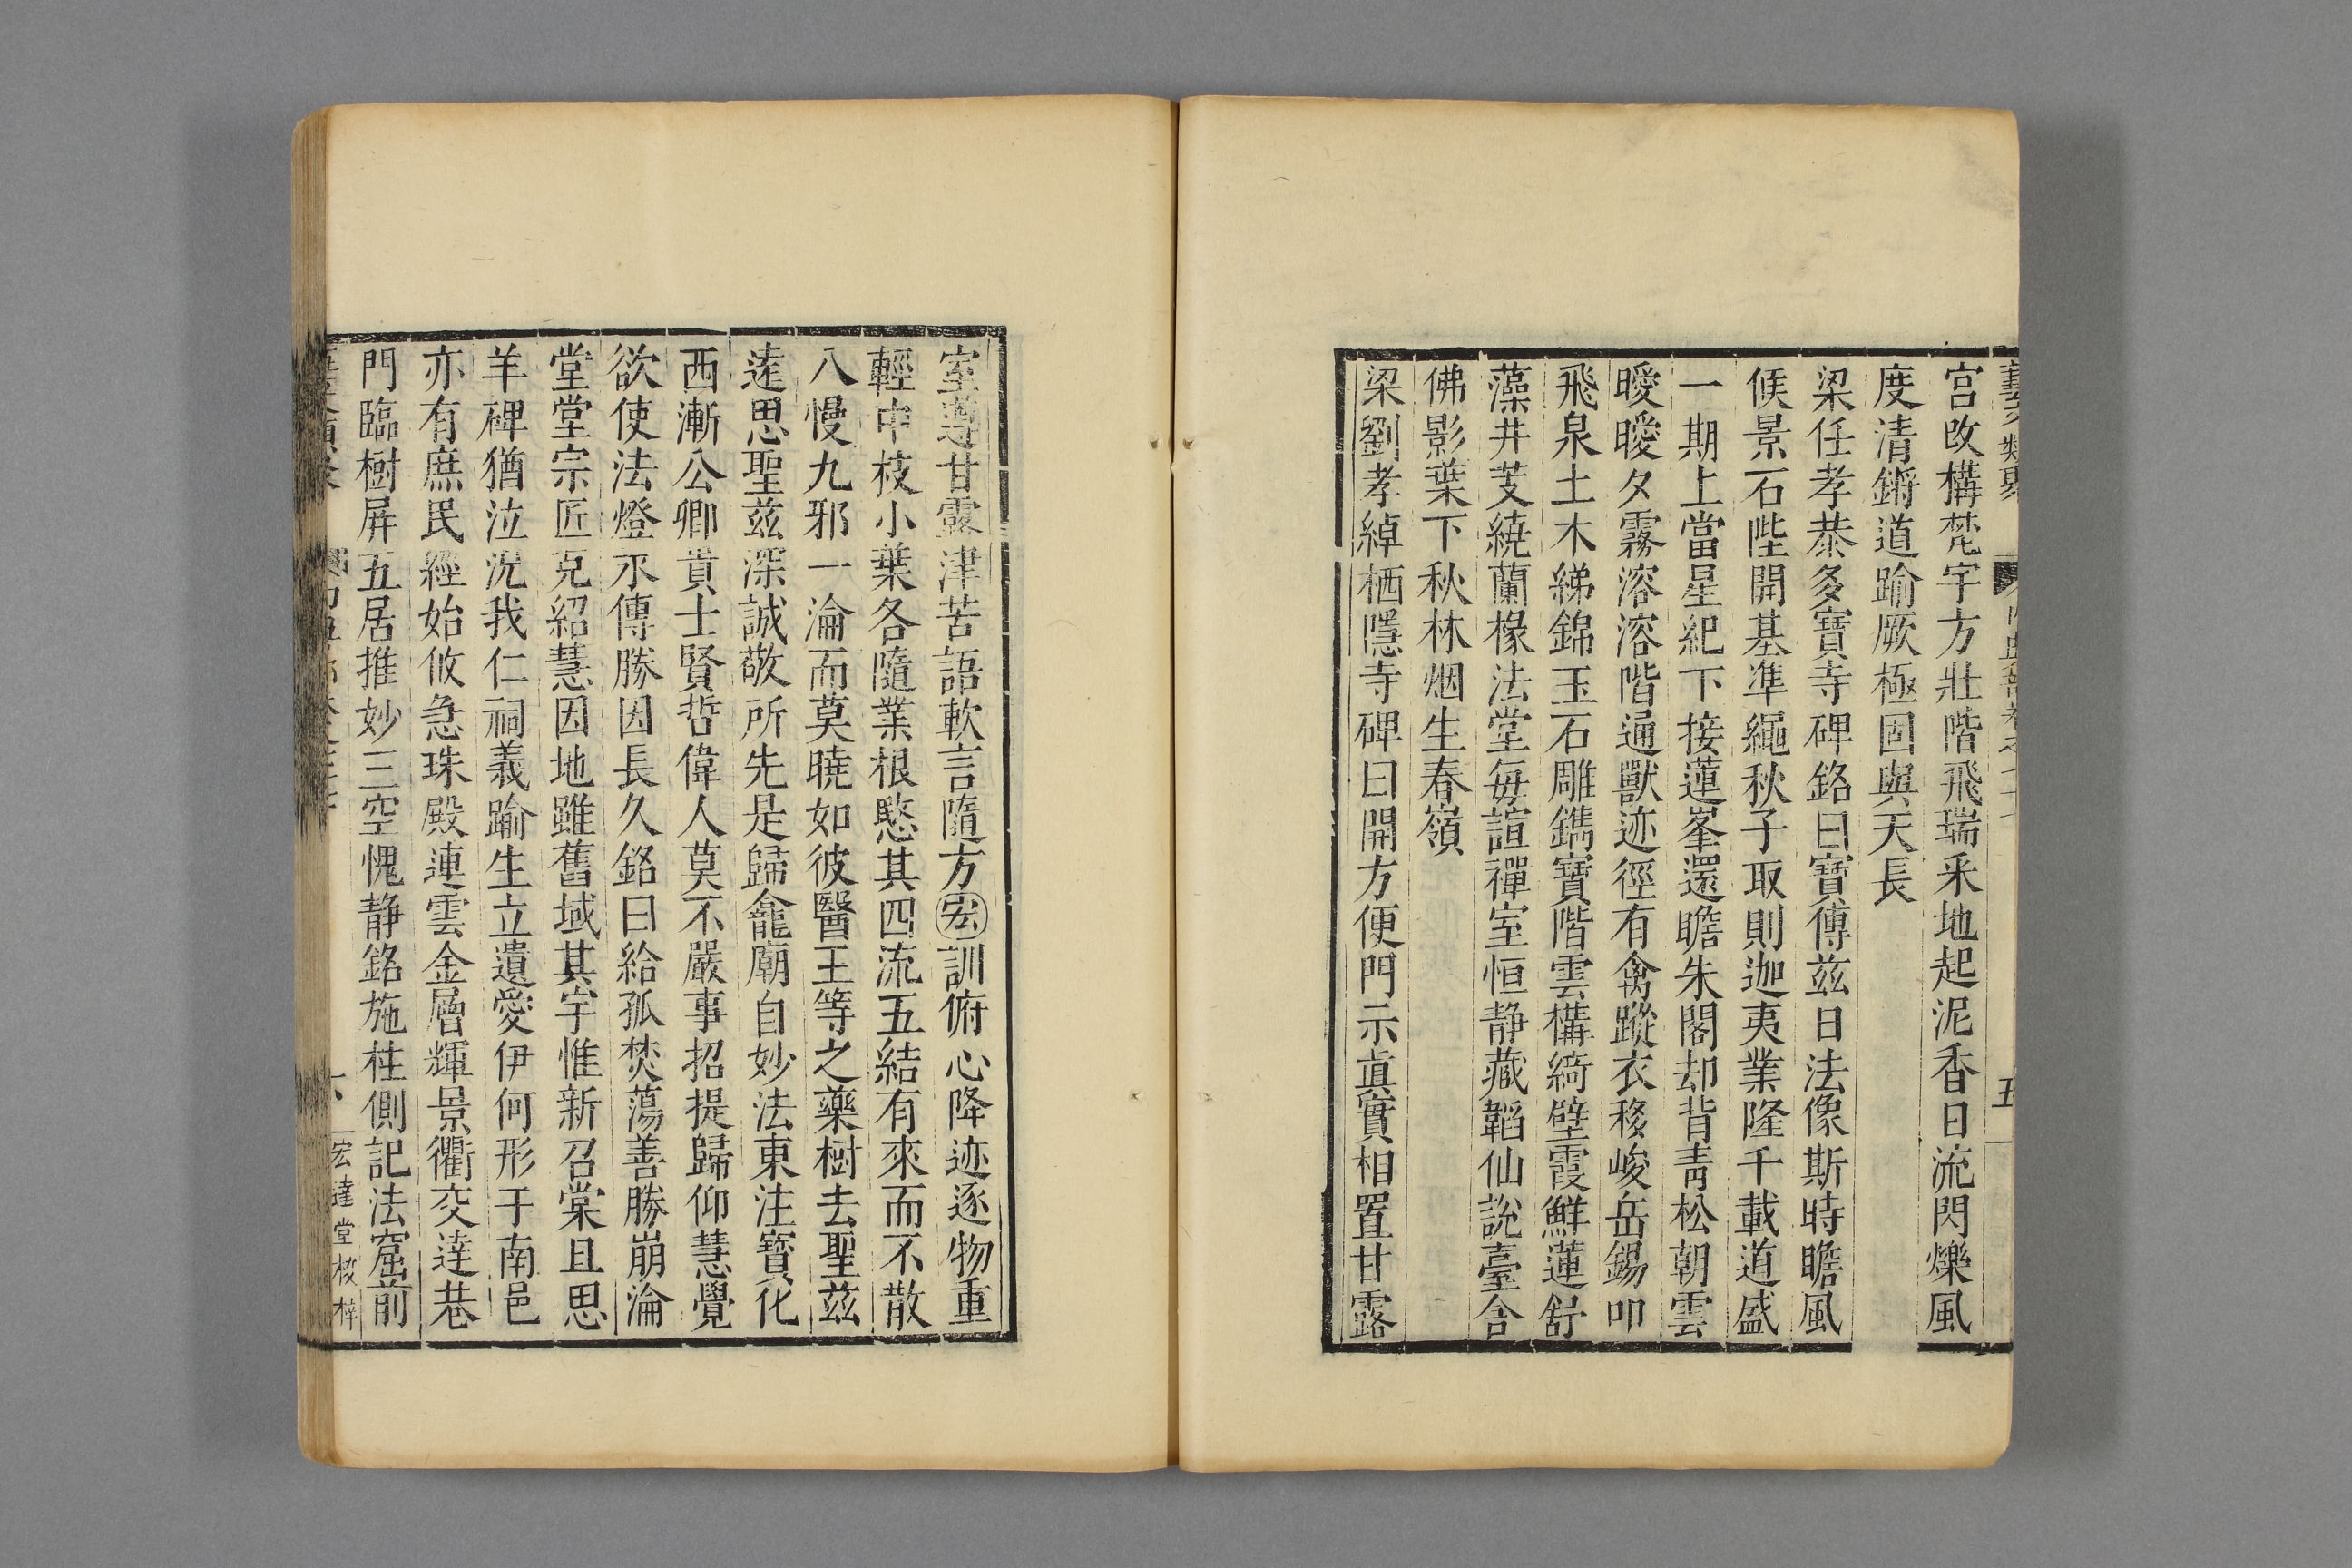 宫改構梵宇方壯階飛瑞采地起泥香日流閃爍風
度清鏘道踰厥極固與天長
梁任孝恭多寶寺碑銘曰寶傳茲日法像斯時瞻風
候景石陛開基凖繩秋子取則迦夷業隆千載道盛
一期上當星紀下接蓮峯還瞻朱閣却背青松朝雲
曖曖夕霧溶溶階通獸迹徑有禽蹤衣移峻岳錫叩
飛泉土木綈錦玉石雕鐫寶階雲構綺壁霞鮮蓮舒
藻井芰繞蘭椽法堂每諠禪室恒静藏韜仙說臺含
佛影葉下秋林烟生春嶺
梁劉孝綽栖隱寺碑曰開方便門示真實相置甘露
室導甘露津苦語軟言隨方宏訓俯心降迹逐物重
輕中枝小葉各隨業根愍其四流五結有來而不散
八慢九邪一淪而莫曉如彼醫王等之藥樹去聖茲
遠思聖茲深誠敬所先是歸龕廟自妙法東注寶化
西漸公卿貴士賢哲偉人莫不嚴事招提歸仰慧覺
欲使法燈永傳勝因長久銘曰給孤焚蕩善勝崩淪
堂堂宗匠克紹慧因地雖舊域其宇惟新召棠且思
羊碑猶泣況我仁祠義踰生立遺愛伊何形于南邑
亦有庶民經始攸急珠殿連雲金層輝景衢交達巷
門臨樹屏五居推妙三空愧静銘施柱側記法窟前
宏達堂校梓